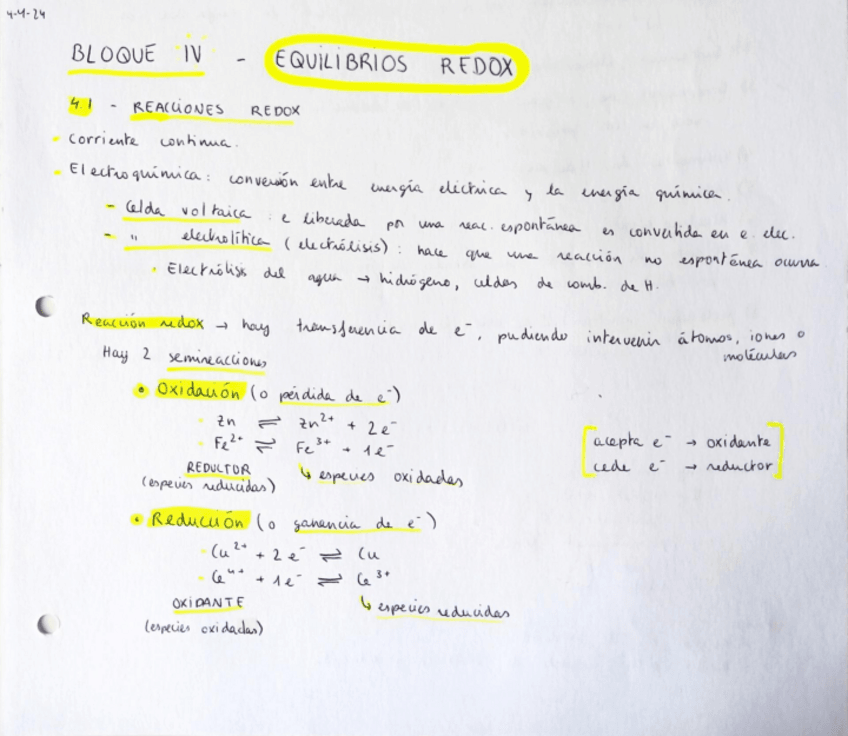 4-4-24
BLOQUE IV - EQUILIBRIOS REDOX
4.1 - REACCIONES REDOX
- Corriente continua.
- Electroquímica: conversión entre energía eléctrica y la energía química.
- Celda voltaica: e liberada por una reac. espontánea es convertida en e. elec.
- " electrolítica (electrólisis): hace que una reacción no espontánea ocurra.
· Electrólisis del agua → hidrógeno, celdas de comb. de H.
Reacción redox → hay transferencia de e⁻, pudiendo intervenir átomos, iones o
moléculas
Hay 2 semireacciones
• Oxidación (o pérdida de e⁻)
- Zn ⇌ Zn²⁺ + 2e⁻
- Fe²⁺ ⇌ Fe³⁺ + 1e⁻
REDUCTOR ↳ especies oxidadas
(especies reducidas)
[acepta e⁻ → oxidante
cede e⁻ → reductor]
• Reducción (o ganancia de e⁻)
- Cu²⁺ + 2e⁻ ⇌ Cu
- Ce⁴⁺ + 1e⁻ ⇌ Ce³⁺
OXIDANTE ↳ especies reducidas
(especies oxidadas)